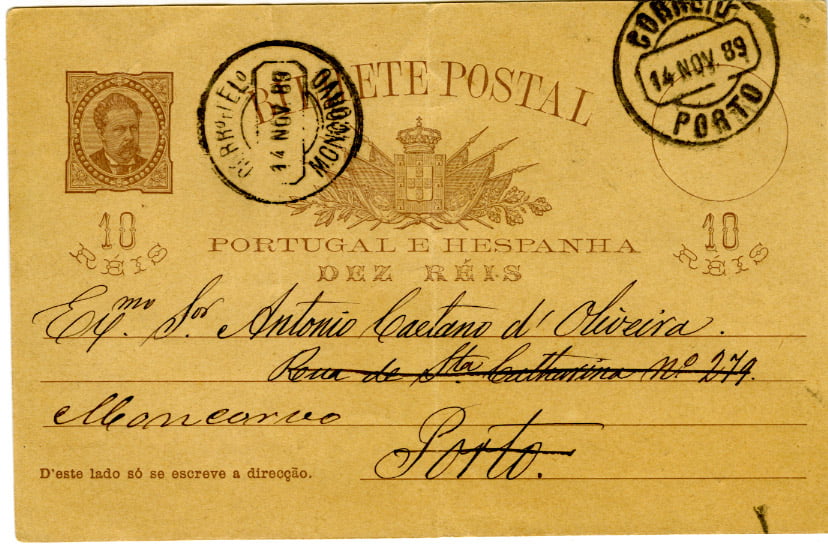 BILHETE POSTAL
CORREIO
14 NOV. 89
PORTO
14 NOV 89
MONCORVO
10
RÉIS
PORTUGAL E HESPANHA
DEZ RÉIS
10
RÉIS
Exmo. Sor Antonio Caetano d'Oliveira.
Rua de Sta Catharina Nº 279.
Moncorvo
Porto.
D'este lado só se escreve a direcção.